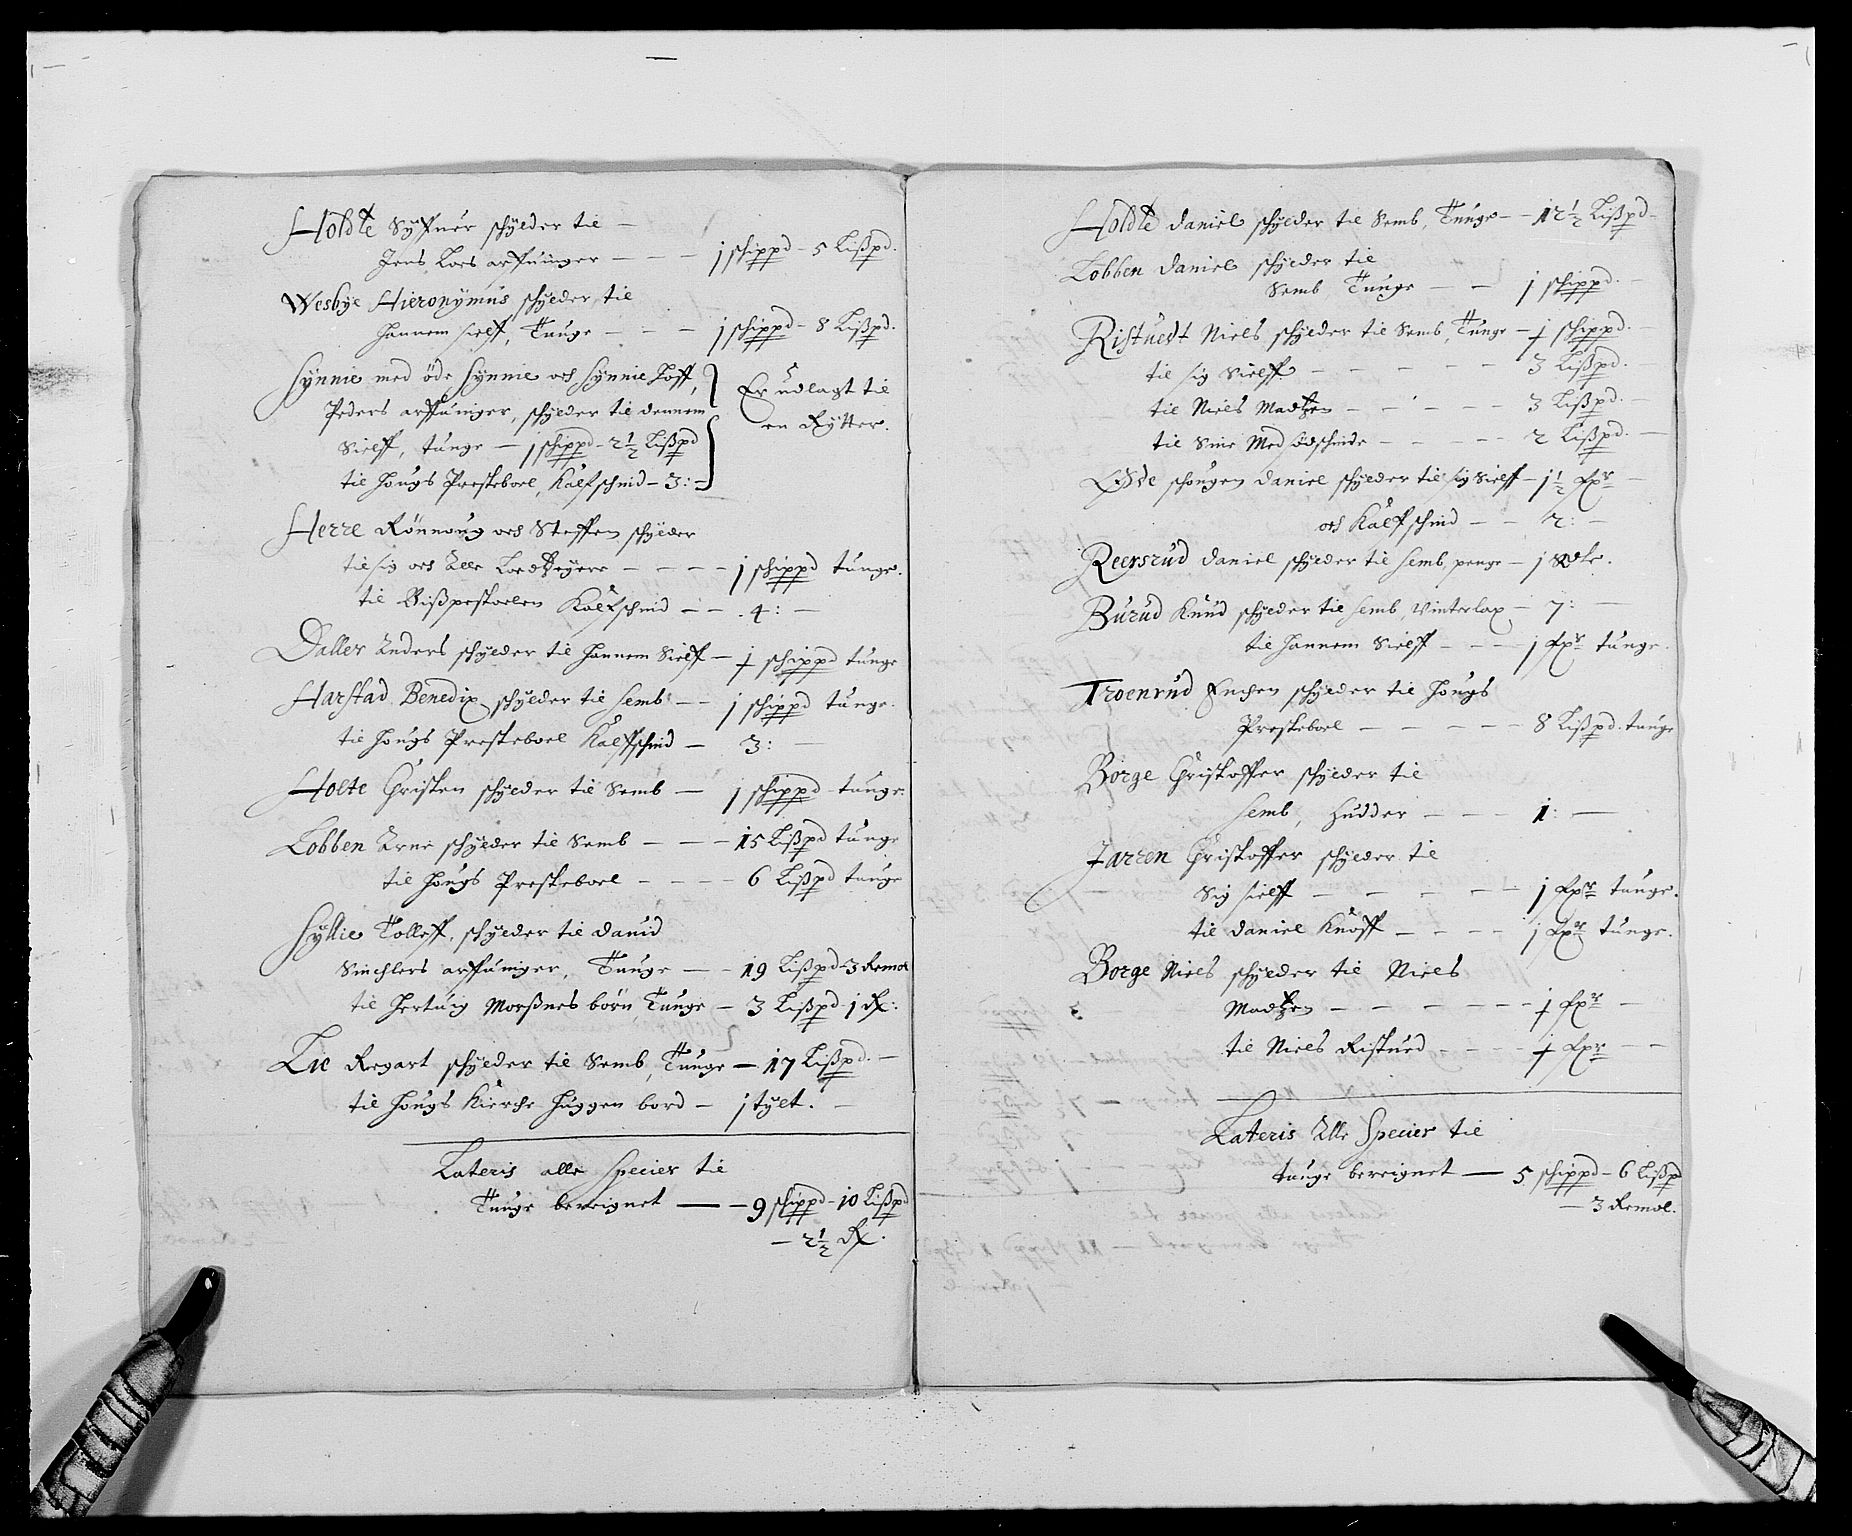 Holdte Syffuer schylder til —
Jens Lars arffuinger — — — 1 schippd - 5 Lißpd.
Wesbye Hieronymus schylder til
hannem sielff, Tunge — — — 1 schippd - 8 Lißpd.
Synnie med öde Synnie och Synnie hoff,
Peders arffuinger, schylder til dennem
Sielff, tunge — 1 schippd - 2½ Lißpd
til Hougs Presteboel, Kalfschind - 3: -
Er udlagt til
en Rytter.
Herre Rönnoug och Steffen schylder
til sig och Alle Lodtzeyere — — — 1 schippd tunge.
til Bißpestoelen Kalfschind — — 4: —
Daller Anders schylder til hannem Sielff — ½ schippd tunge
Harstad Benedix schylder til Semb — — 1 schippd tunge.
til Hougs Presteboel Kalffschind — 3: —
Holte Christen schylder til Semb — 1 schippd tunge.
Lobben Arne schylder til Semb — — — 15 Lißpd tunge
til Hougs Presteboel — — — — 6 Lißpd tunge
Hyllie Tolleff, schylder til Dauid
Sinchlers arffuinger, Tunge — — 19 Lißpd - 3 Remol
til Hertuig Morßnes börn, Tunge — 3 Lißpd - 1 R:
Lie Regart schylder til Semb, Tunge — 17 Lißpd. —
til Hougs Kierche huggen bord — 1 tylt. —
Lateris alle Species til
Tunge bereignet — — 9 schippd - 10 Lißpd
— 2½ R.
Holdte Daniel schylder til Semb, Tunge - - 12½ Lißpd -
Lobben Daniel schylder til
Semb Tunge — — 1 schippd. —
Ristuedt Niels schylder til Semb, Tunge — ½ schippd. —
til sig Sielff — — — — — 3 Lißpd. —
til Niels Madtzen — — — — — 3 Lißpd. —
til Sine Med — — — — 2 Lißpd. —
Øde schougen Daniel schylder til sig Sielff — 1½ Fxr —
och Kalffschind — — 2: —
Reersrud Daniel schylder til Semb, penge — 1 Rdlr.
Burud Knud schylder til Semb, Vinterlax — 7: —
til hannem Sielff — — — 1 Fxr tunge.
Troenrud Enchen schylder til Hougs
Presteboel — — — — — 8 Lißpd. tunge
Borge Christoffer schylder til
Semb, Hudder — — — 1: —
Jarren Christoffer schylder til
Sig sielff — — — — — 1 Fxr tunge.
til Daniel Knoff — — — — 1 Fxr tunge.
Borge Niels schylder til Niels
Madtzen — — — — — ½ Fxr —
til Niels Ristued — — — ½ Fxr — —
Lateris Alle Species til
tunge bereignet — 5 schippd - 6 Lißpd
— 3 Remol.